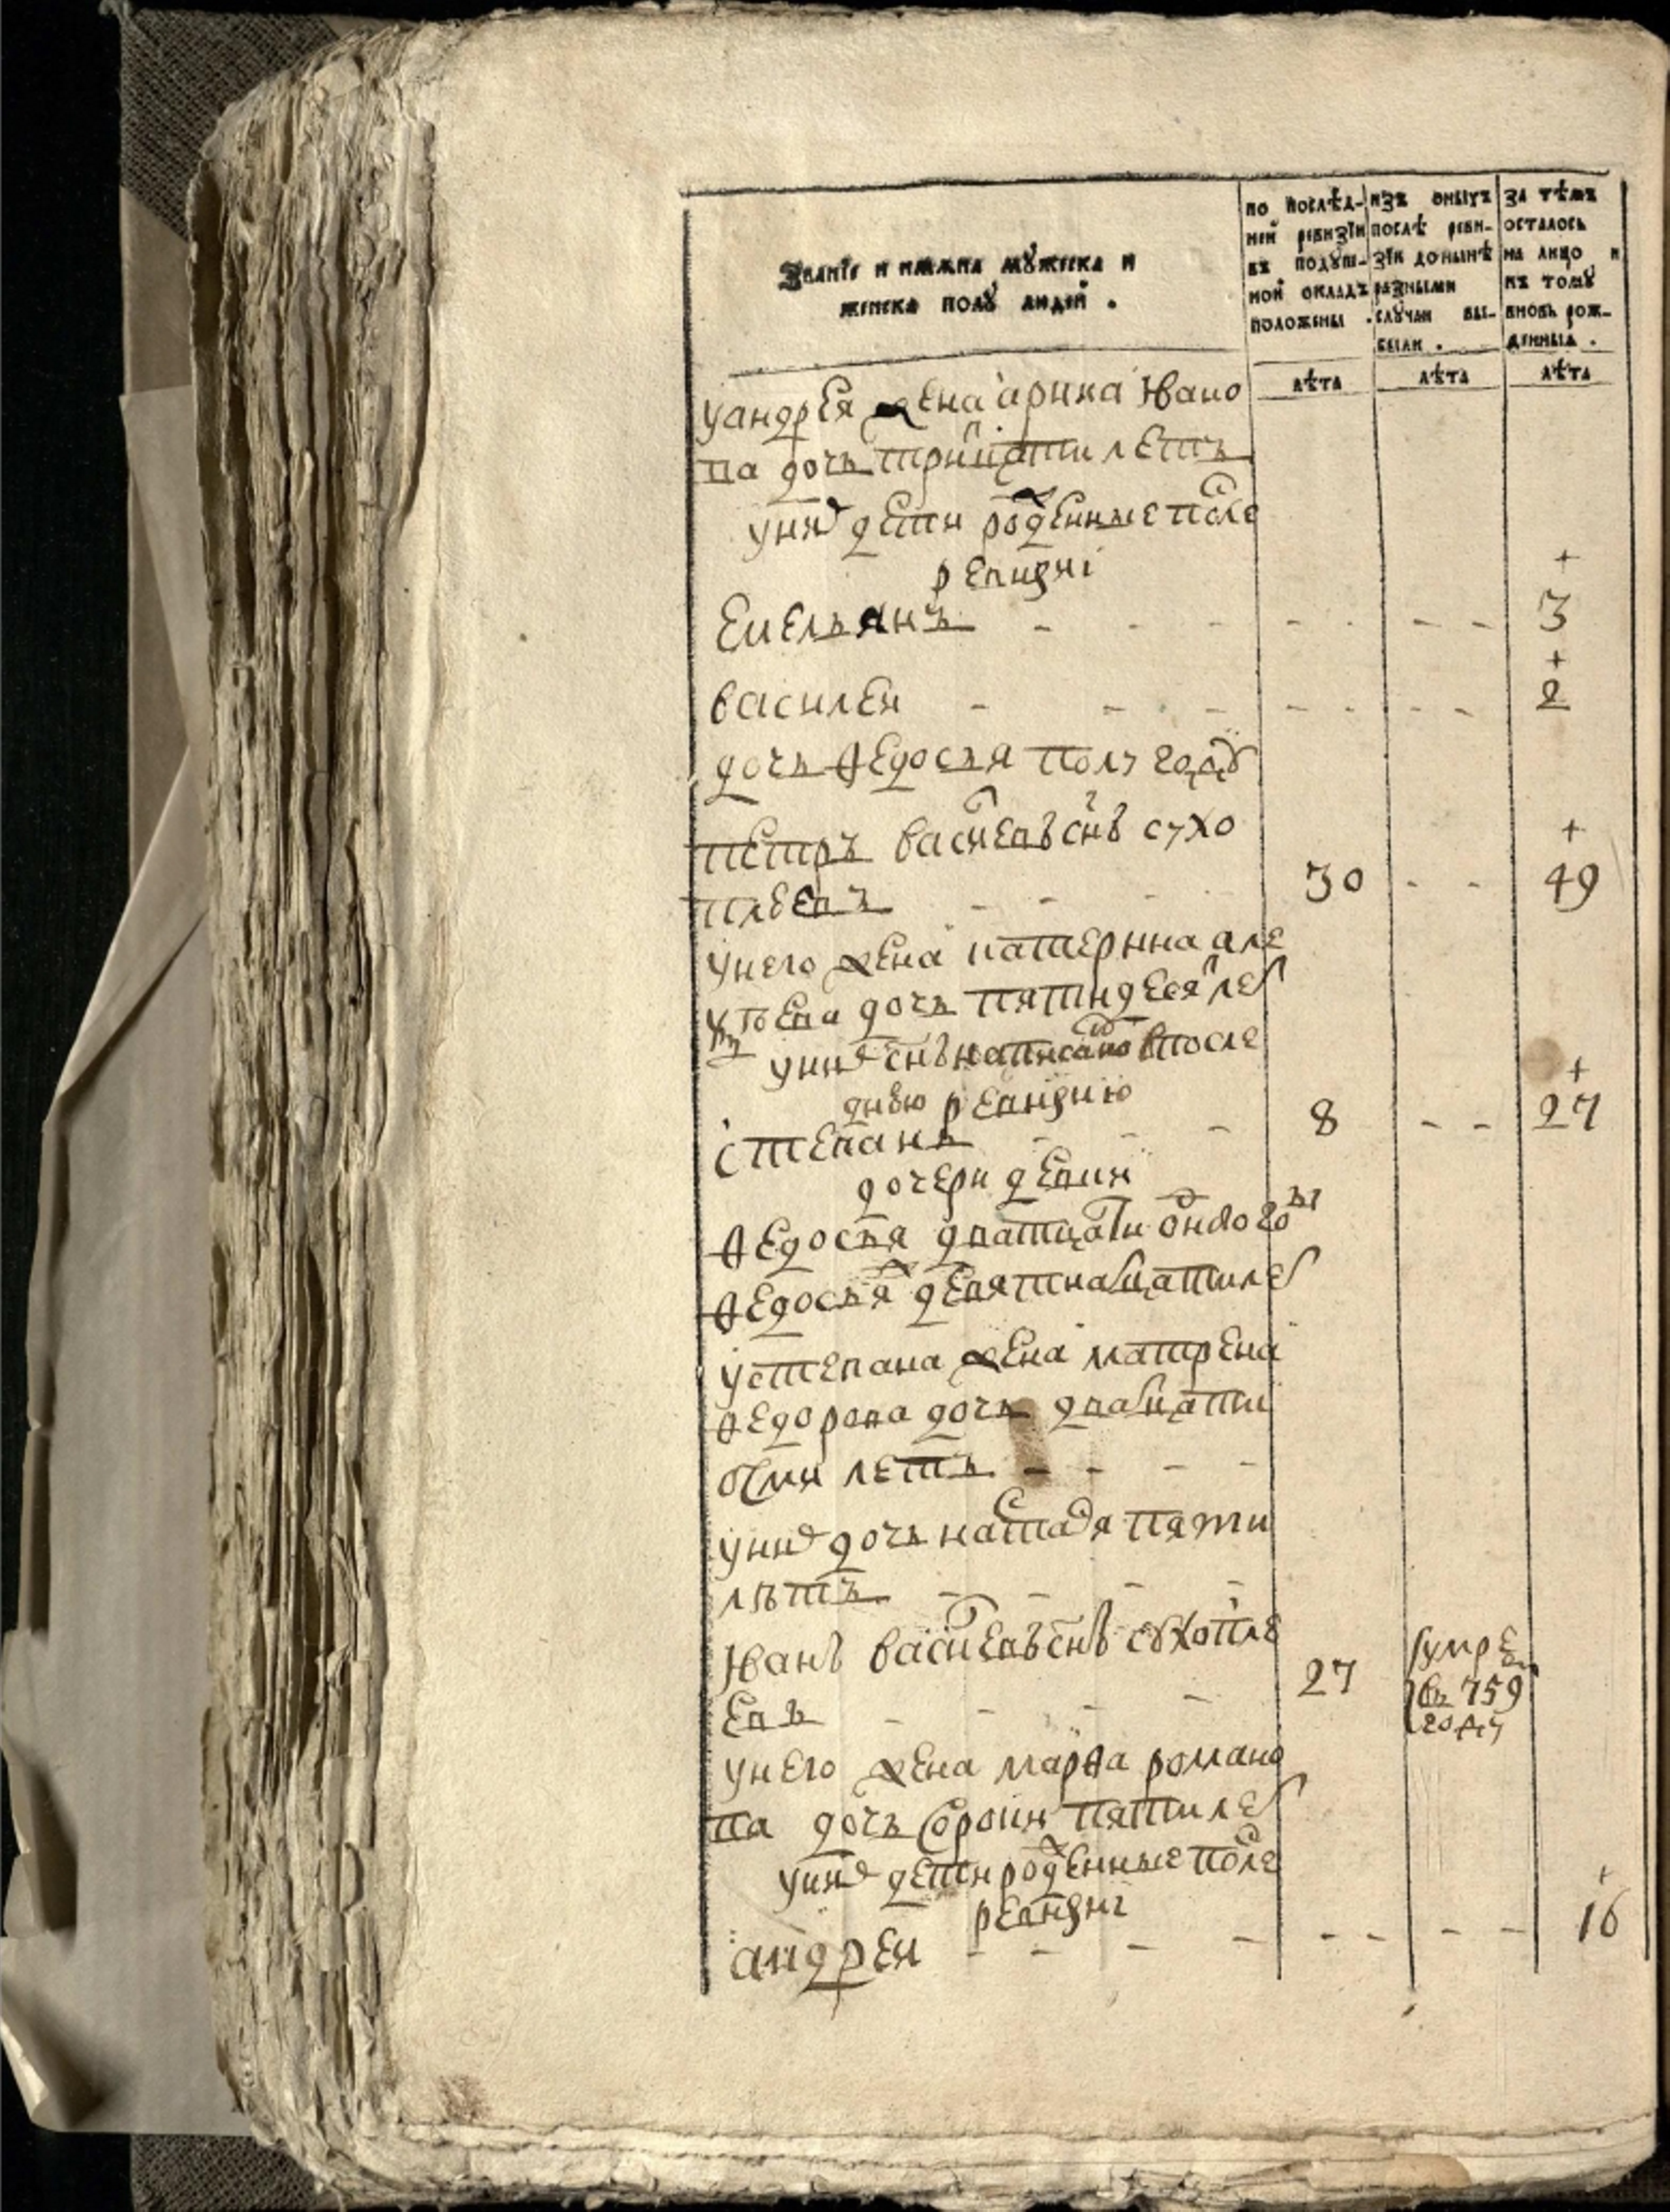 Званїе и имѧна мꙋжеска и
женска полꙋ людей .
по послѣд-
ней ревизїи
въ подꙋш-
ной окладъ
положены .
изъ оныхъ
послѣ реви-
зїи донынѣ
разными
слꙋчаи вы-
были .
за тѣмъ
осталось
на лицо и
къ томꙋ
вновь рож-
денныѧ .
лѣта
лѣта
лѣта
уандрея жена арина ивано
ва дочь тритцати летъ
унихъ дети рожденные после
ревизиi
емельянъ - - - - - - - 3
василеи - - - - - - - 2
дочь ѳедосья полу годꙋ
петръ васильевъ снъ сухо
плꙋевъ - - - 30 - - 49
унего жена катерина але
ѯѣева дочь пятидесят летъ
унихъ снъ написаной впосле
днюю ревизию
степанъ - - - 8 - - 27
дочери девки
ѳедосья дватцати одного го
ѳедосья девятнатцати летъ
устепана жена матрена
ѳедорова дочь дватцати
осми летъ - - - -
унихъ дочь настасья пяти
лѣтъ - - - -
иванъ васильевъ снъ сꙋхоплꙋ
евъ - - - - 27
умре
въ 759
году
унего жена марѳа романо
ва дочь сорокъ пяти летъ
унихъ дети рожденные после
ревизиi
андреи - - - - - - - - 16